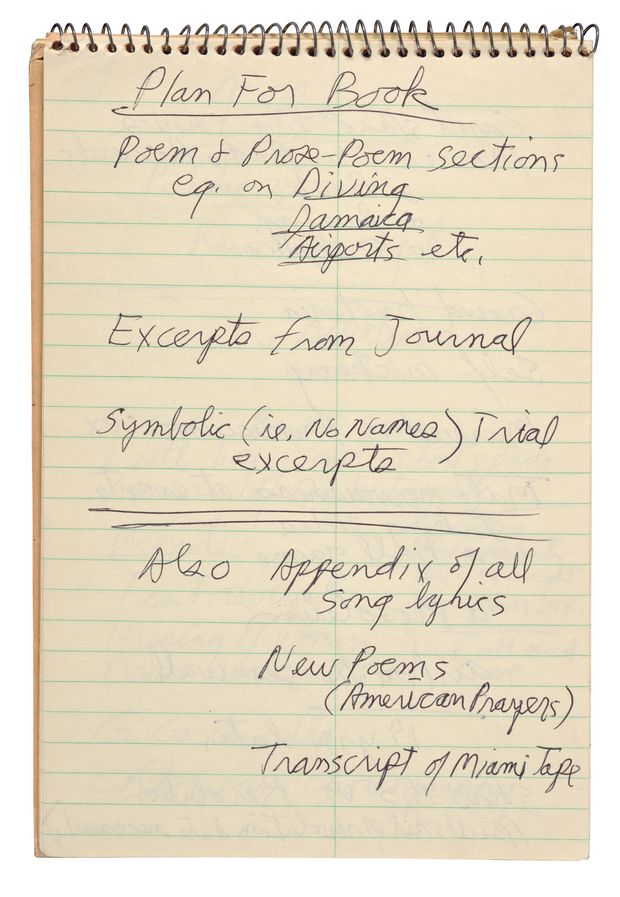 Plan For Book
Poem & Prose-Poem sections
eg. on Diving
Jamaica
Airports etc.
Excerpts from Journal
Symbolic (ie. No Names) Trial
excerpts
Also Appendix of all
song lyrics
New Poems
(American Prayers)
Transcript of Miami Tape